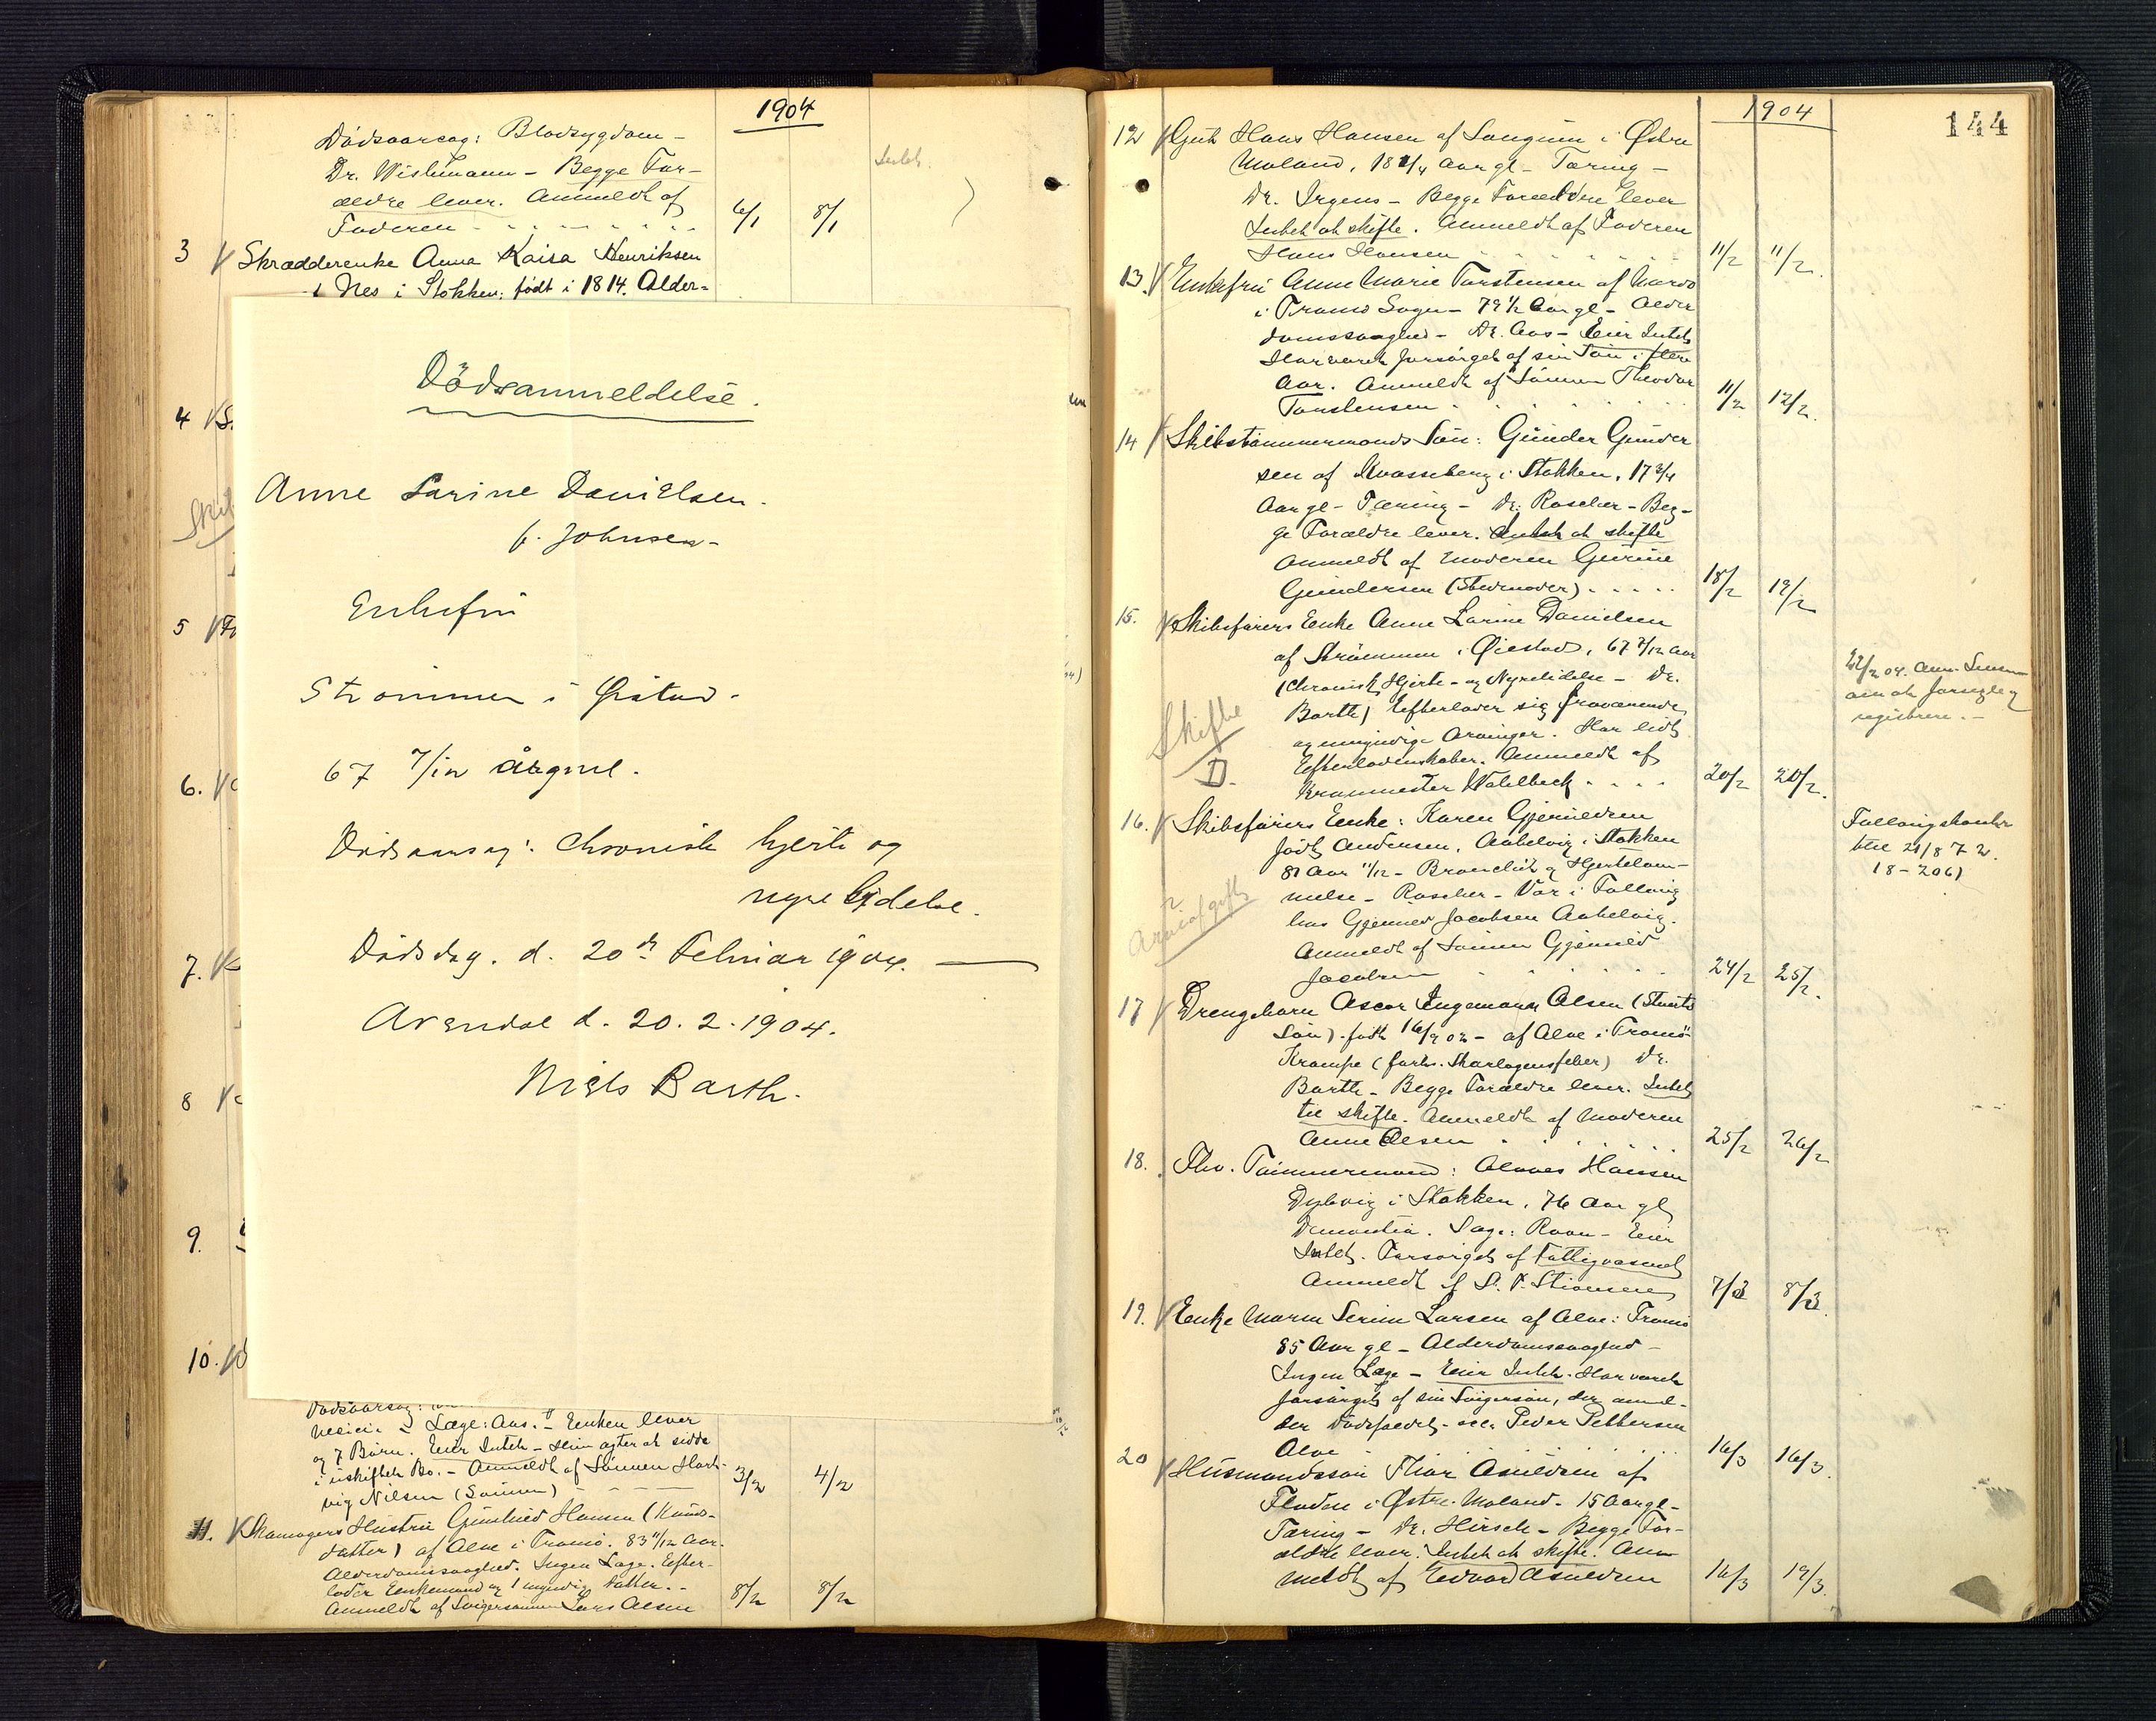 1904
Dödsaarsag: Blodsygdom -
Dr. Wishmann - Begge For-
ældre lever. Anmeldt af
Faderen 6/1 8/1
3 Skrædderenke Anna Kaisa Henriksen
i Nes i Stokken; født i 1814. Alder=
Dödsanmeldelse.
Anne Larine Danielsen.
f. Johnsen -
Enkefru
Strömmen i Östad.
67 7/12 år gml.
Dødsaarsag: Chronisk hjerte og
nyrelidelse.
Dødsdag. d. 20de Februar 1904.
Arendal d. 20.2.1904.
Niels Barth.
4
5
6.
7.
8
9.
10.
Læge: Aas. - Enken lever
og 7 Børn. Eier Intet - Hun agter at sidde
i uskiftet Bo. - Anmeldt af Sønnen Hart-
vig Nilsen (Sønnen) 3/2 4/2
11. Skomagers Hustru Gunhild Hansen (Knuds-
datter) af Alve i Tromö. 83 11/12 Aar.
Alderdomssvaghed. Ingen Læge. Efter-
lader Enkemand og 1 myndig Datter. -
Anmeldt af Svigersønnen Lars Olsen 8/2 8/2
1904
144
12 Gut Hans Hansen af Longum i Østre
Moland, 18 1/4 Aar gl - Tæring -
Dr. Irgens - Begge Forældre lever
Intet at skifte. Anmeldt af Faderen
Hans Hansen 11/2 11/2.
13. Enkefru Anne Marie Torstensen af Narvo
i Tromö Sogn - 79 1/2 Aar gl - Alder
domssvaghed - Dr. Aas - Eier Intet
Har været forsörget af sin Sön i flere
Aar. Anmeldt af Sönnen Theodor
Torstensen 11/2 12/2.
14 Skibstömmermands Sön: Gunder Gunder
sen af Kvasseberg i Stokken, 17 3/4
Aar gl - Tæring - Dr. Roscher - Beg-
ge Forældre lever. Intet at skifte
Anmeldt af Moderen Gurine
Gundersen (Stedmoder) 18/2 19/2
15. Skibsførers Enke Anne Larine Danielsen
af Strömmen i Öiestad, 67 7/12 Aar
(Chronisk Hjerte- og Nyrelidelse - Dr.
Barth) Efterlader sig fraværende
og umyndige Arvinger. Har lidt
Efterladenskaber. Anmeldt af
Kranmester Wahlbeck 20/2 20/2.
Skifte
D.
22/2 04. Anm. Lensm
om at forsegle og
registrere. -
16. Skibsførers Enke: Karen Gjeruldsen
født Andersen, Aabelvig i Stokken
81 Aar 11/12 - Bronchit og Hjertelam-
melse - Roscher - Var i Föllaug
hos Gjeruld Jacobsen Aabelvig.
Anmeldt af Sönnen Gjeruld
Jacobsen 24/2 25/2.
Arveafgift
Follaugskontr
tbl 21/8 72.
18-206)
17 Drengebarn Oscar Ingemann Olsen (Stuerts
Sön) født 16/9 02 - af Alve i Tromö -
Krampe (forh. Skarlagensfeber) Dr.
Barth - Begge Forældre lever. Intet
til skifte. Anmeldt af Moderen
Anne Olsen 25/2 26/2
18. Fhv. Tömmermand: Olaves Hansen
Dybvig i Stokken, 76 Aar gl
Dementia. Læge: Roan - Eier
Intet. Forsörget af Fattigvæsenet
Anmeldt af S. P. Stiansen 7/3 8/3.
19. Enke Maren Serine Larsen af Alve i Tromö
85 Aar gl - Alderdomssvaghed -
Ingen Læge - Eier Intet. Har været
forsörget af sin Svigersön, der anmel-
der Dødsfaldet - Peder Pettersen
Alve 16/3 16/3.
20 Husmandssön Thor Osuldsen af
Floden i Østre Moland. 15 Aar gl -
Tæring - Dr. Hirsch - Begge For-
ældre lever. Intet at skifte. An-
meldt af Edvard Osuldsen 16/3 19/3.